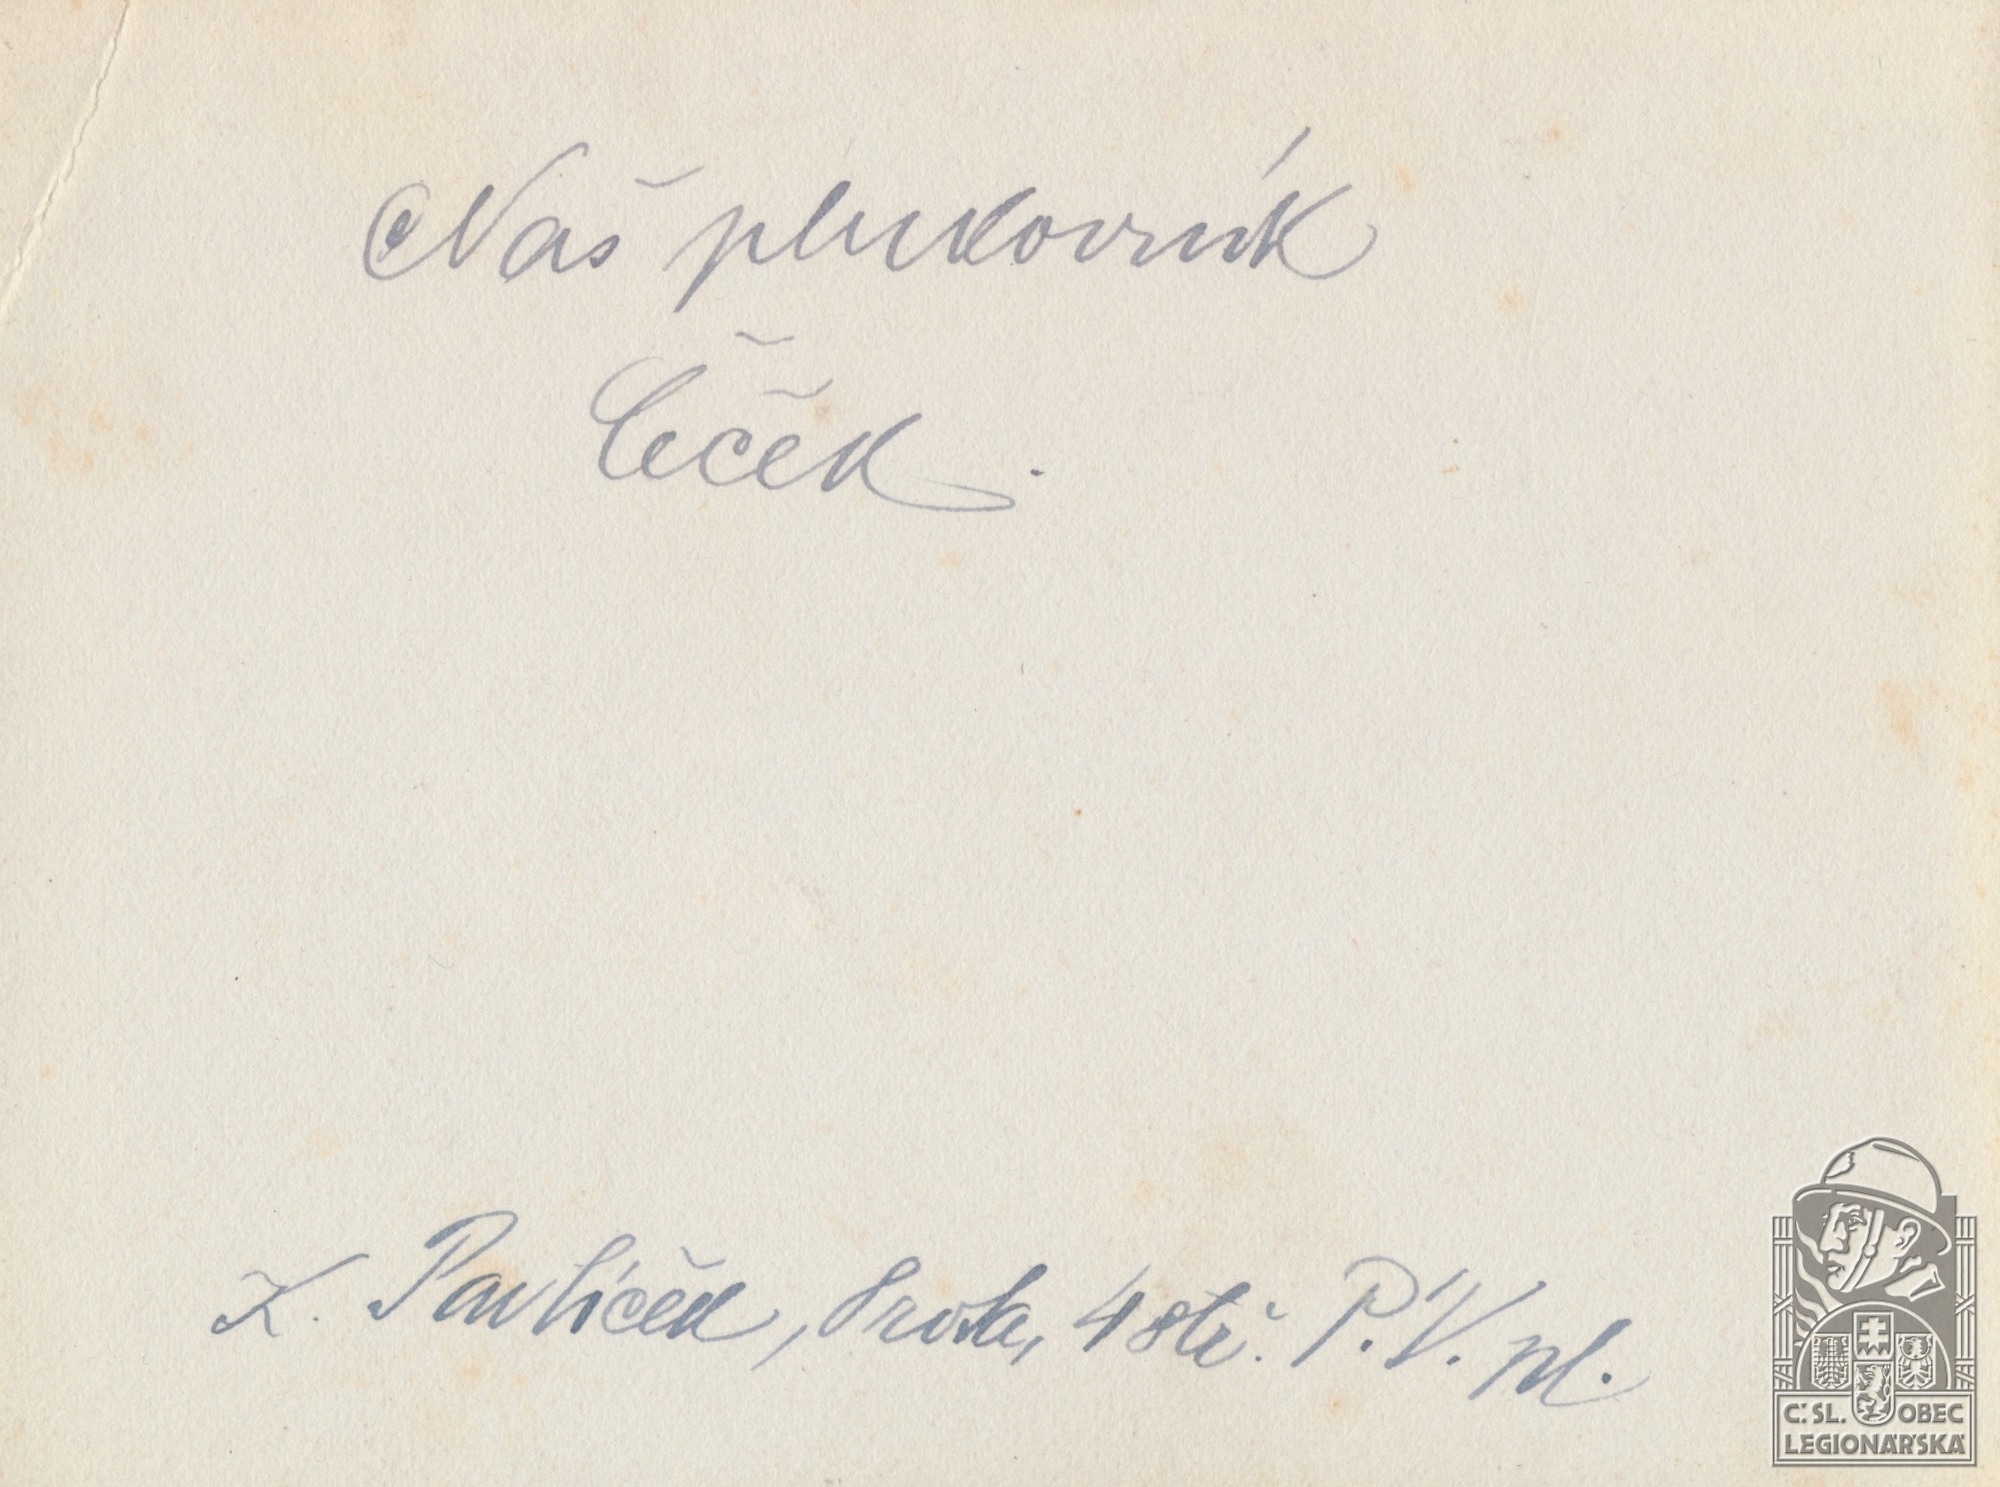 Náš plukovník
Čeček.
K. Pavlíček, 8 rota, 4 stř. P.V. pl.
Č.SL. OBEC
LEGIONÁŘSKÁ